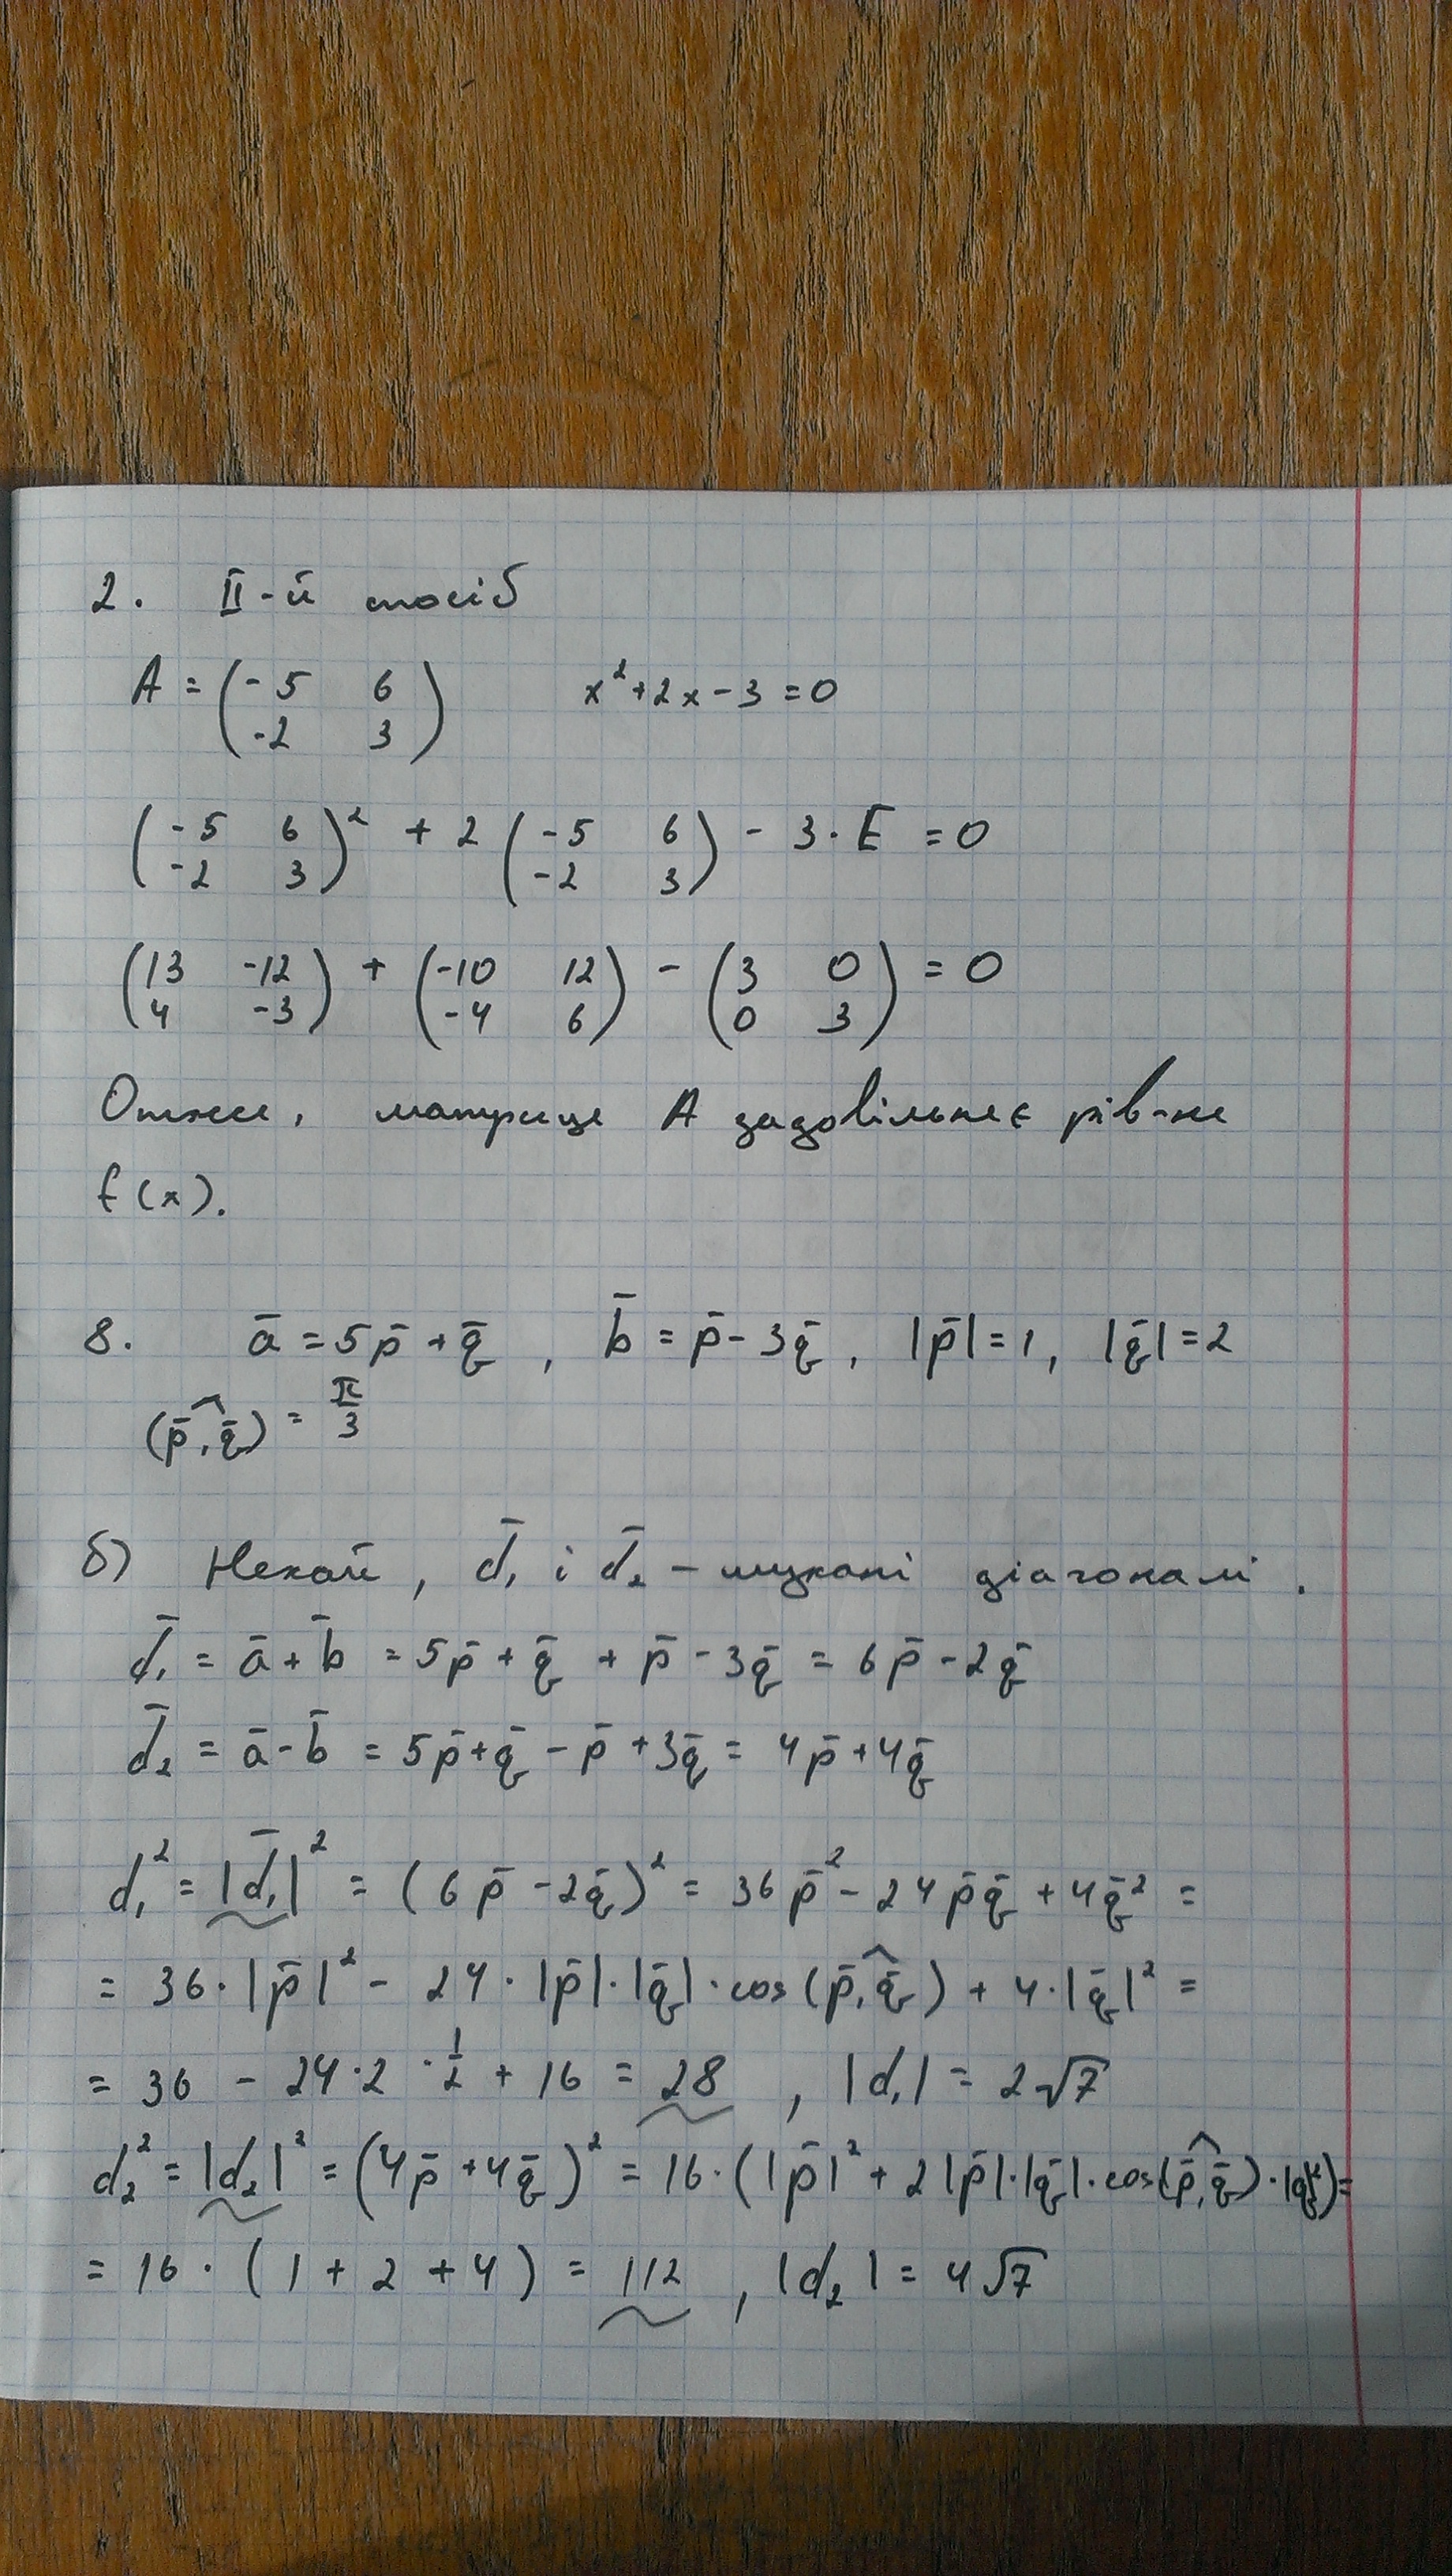 2. II-й спосіб
A = (-5 6; -2 3) x² + 2x - 3 = 0
(-5 6; -2 3)² + 2 (-5 6; -2 3) - 3 · E = 0
(13 -12; 4 -3) + (-10 12; -4 6) - (3 0; 0 3) = 0
Отже, матриця A задовільняє рів-ня
f(x).
8. a̅ = 5p̅ + q̅, b̅ = p̅ - 3q̅, |p̅| = 1, |q̅| = 2
(p̅,^q̅) = π/3
б) Нехай, d̅₁ і d̅₂ - шукані діагоналі.
d̅₁ = a̅ + b̅ = 5p̅ + q̅ + p̅ - 3q̅ = 6p̅ - 2q̅
d̅₂ = a̅ - b̅ = 5p̅ + q̅ - p̅ + 3q̅ = 4p̅ + 4q̅
d₁² = |d̅₁|² = (6p̅ - 2q̅)² = 36p̅² - 24p̅q̅ + 4q̅² =
= 36 · |p̅|² - 24 · |p̅| · |q̅| · cos(p̅,^q̅) + 4 · |q̅|² =
= 36 - 24 · 2 · 1/2 + 16 = 28, |d₁| = 2√7
d₂² = |d₂|² = (4p̅ + 4q̅)² = 16 · (|p̅|² + 2|p̅| · |q̅| · cos(p̅,^q̅) · |q̅|²) =
= 16 · (1 + 2 + 4) = 112, |d₂| = 4√7